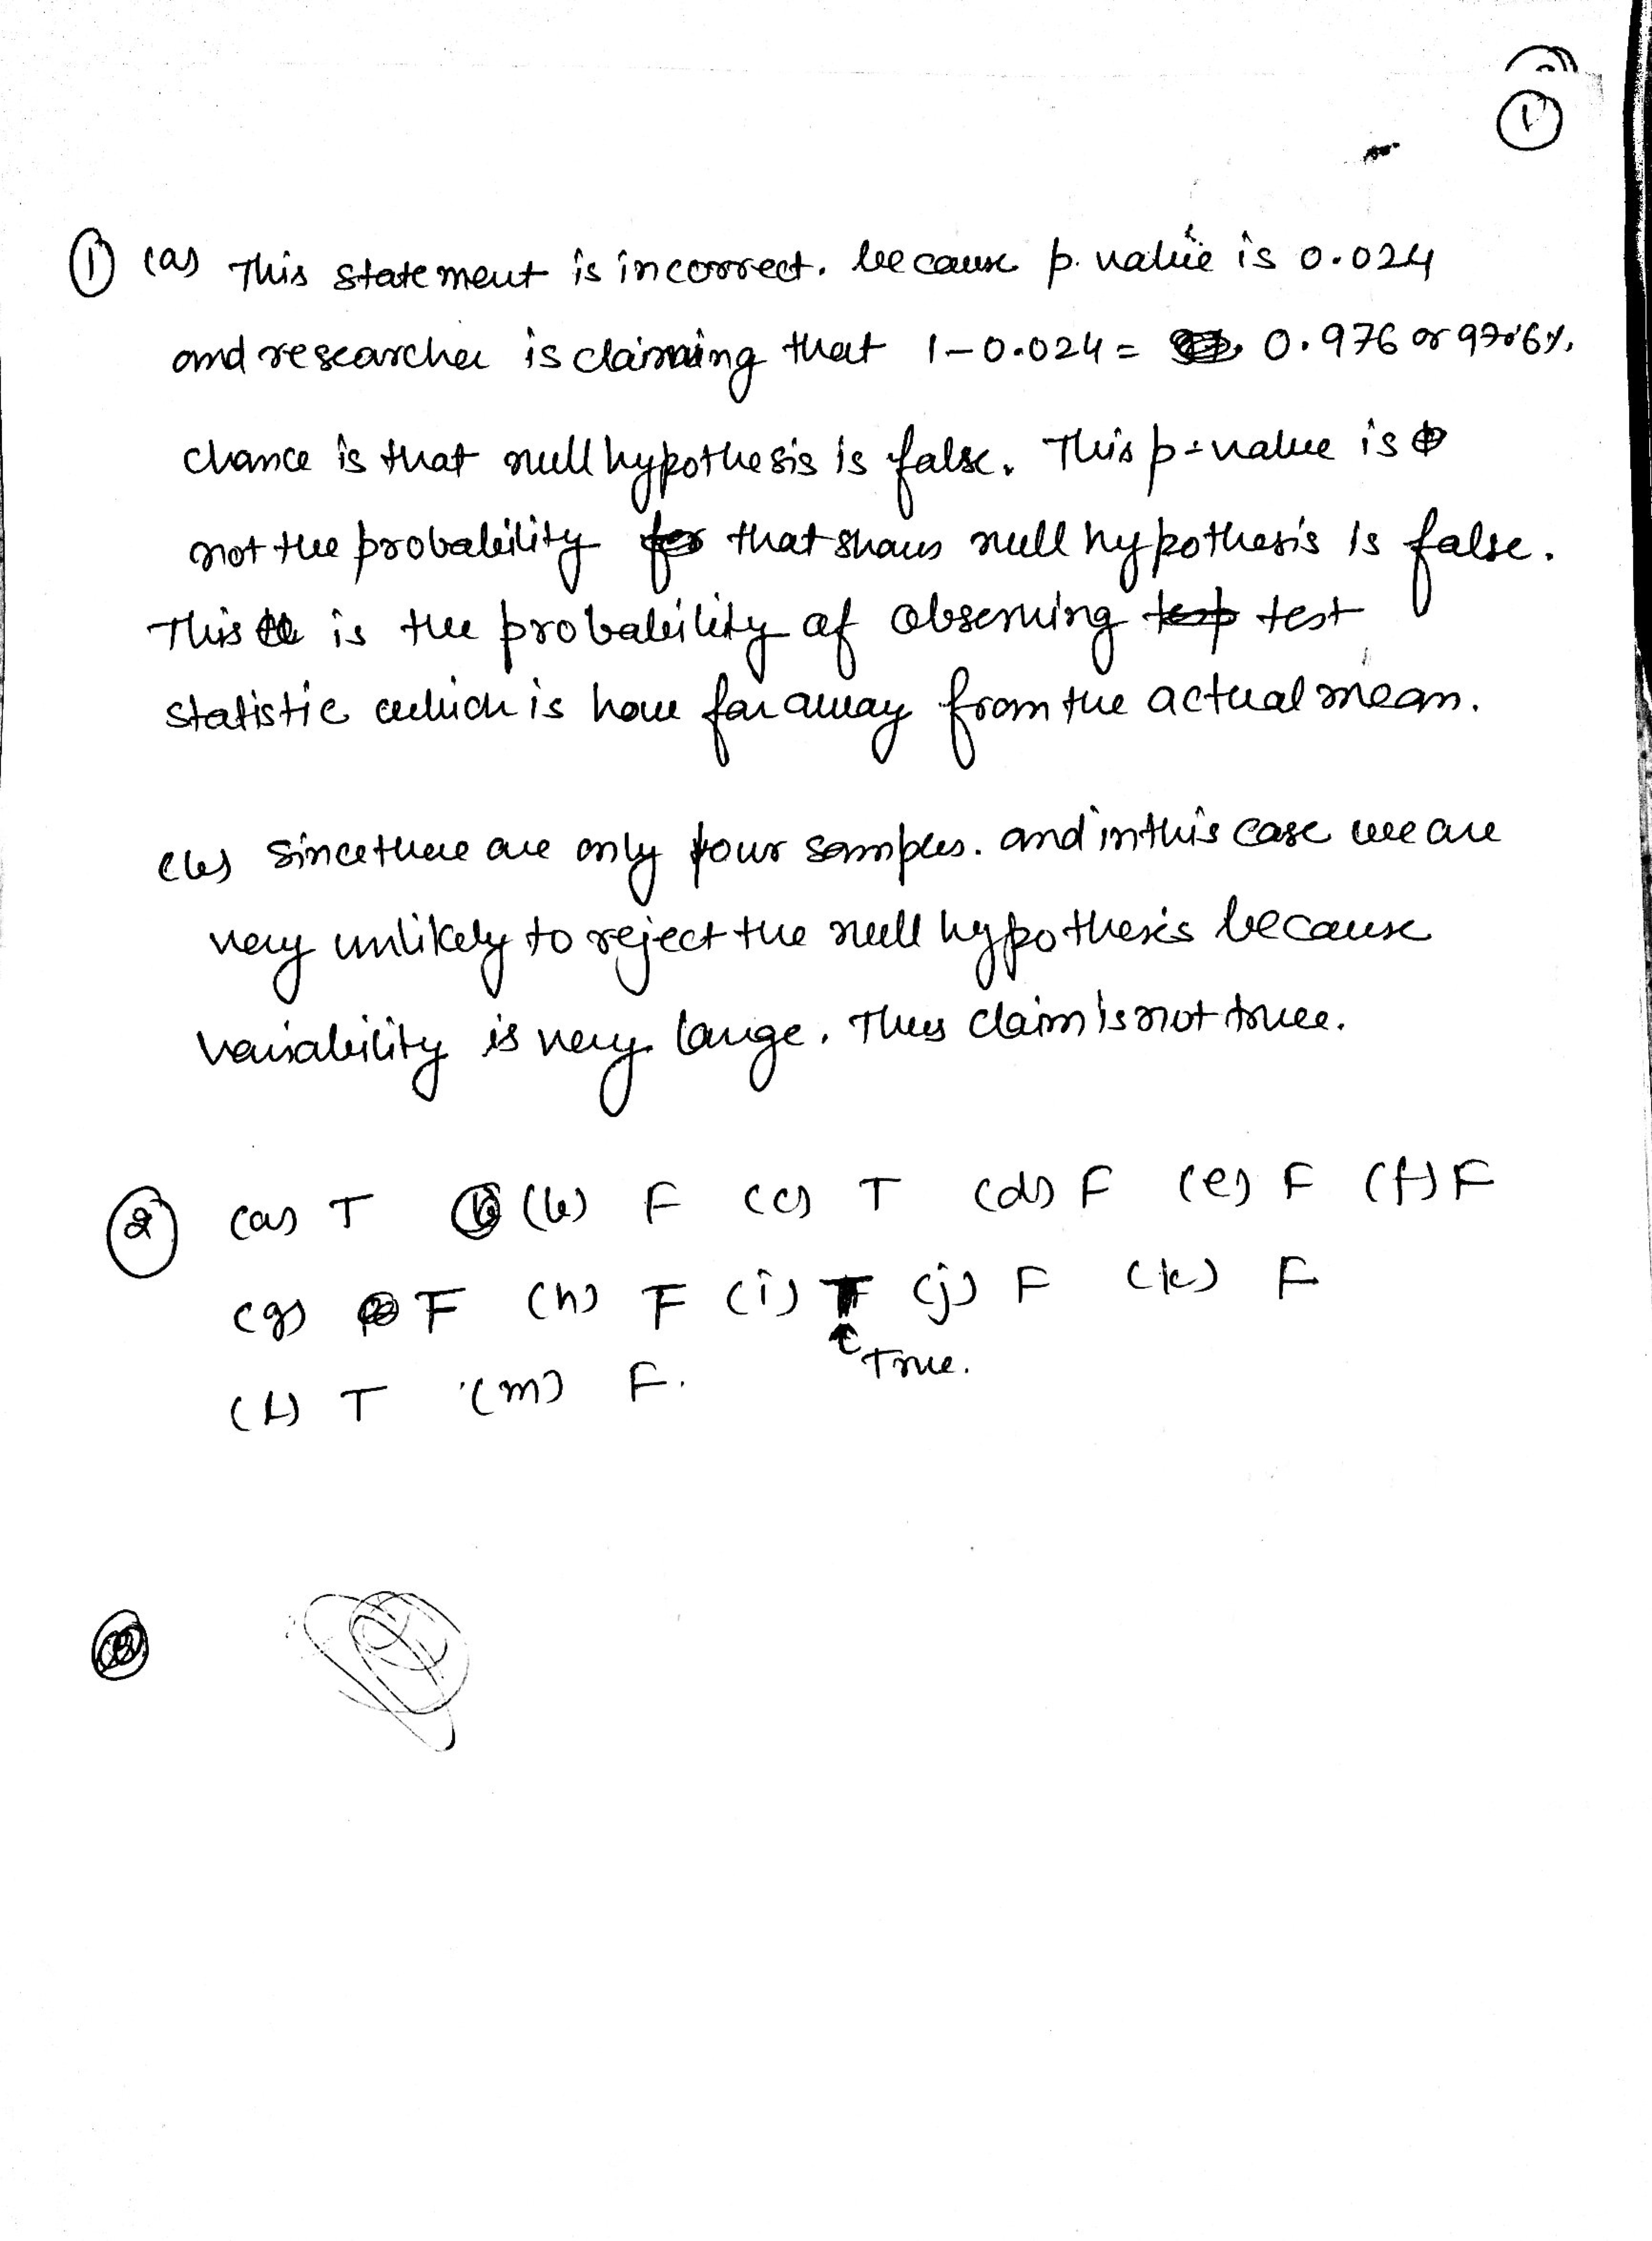 ①
① (a) This statement is incorrect. because p. value is 0.024
and researcher is claiming that 1-0.024= 0.976 or 97.6%.
chance is that null hypothesis is false. This p-value is
not the probability that shows null hypothesis is false.
This is the probability of observing test
statistic which is how far away from the actual mean.
(b) Since there are only four samples. and in this case we are
very unlikely to reject the null hypothesis because
variability is very large. Thus claim is not true.
② (a) T (b) F (c) T (d) F (e) F (f) F
(g) F (h) F (i) T (j) F (k) F
True.
(l) T (m) F.